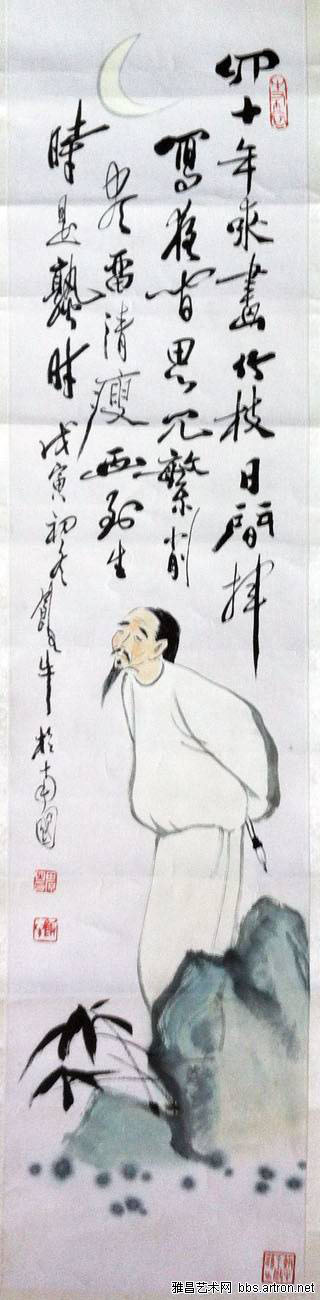 四十年來畫竹枝日間揮
寫夜间思冗繁削
尽留清瘦画到生
時是熟時戊寅初冬牛於南國
雅昌艺术网 bbs.artron.net